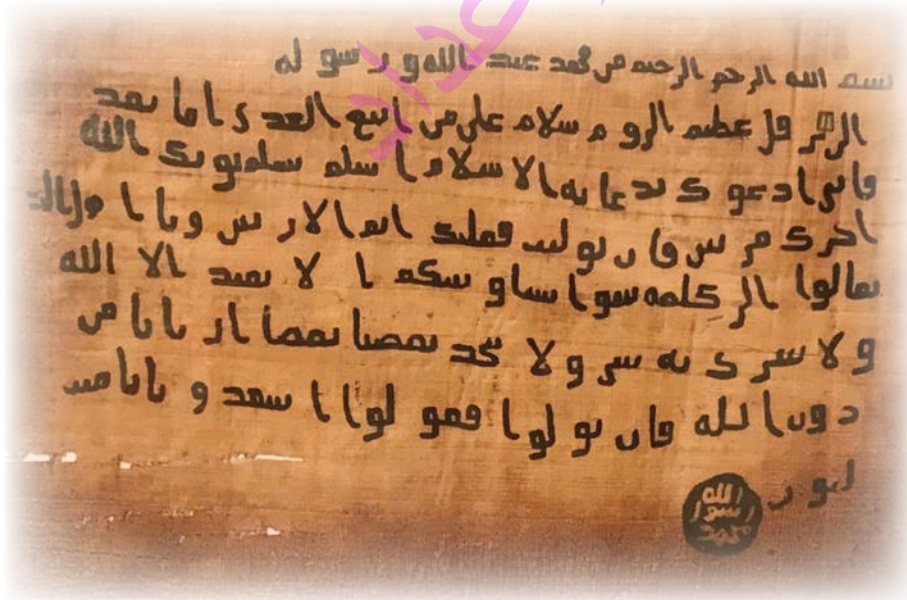 بسم الله الرحمن الرحيم من محمد عبد الله و رسوله
الى هرقل عظيم الروم سلام على من اتبع الهدى اما بعد
فانى ادعوك بدعاية الاسلام اسلم تسلم يوتك الله
اجرك مرتين فان توليت فعليك اثم الاريسين و يا اهل
تعالوا الى كلمة سوا بيننا و بينكم ا لا نعبد الا الله
و لا نشرك به شى و لا يتخذ بعضنا بعضا اربابا من
دون الله فان تولوا فقولوا اشهدوا بانا مس
لمون
الله
رسول
محمد